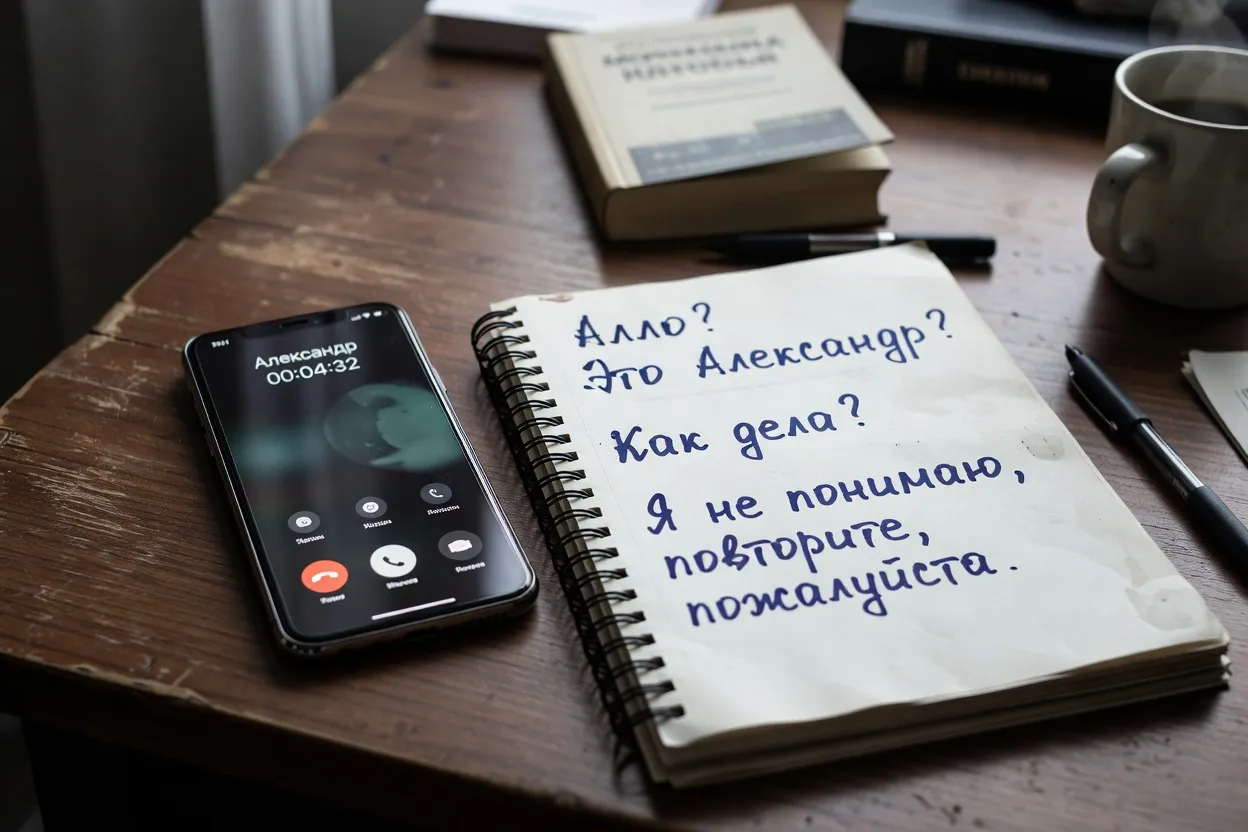 Александр
00:04:32
Алло?
Это Александр?
Как дела?
Я не понимаю,
повторите,
пожалуйста.